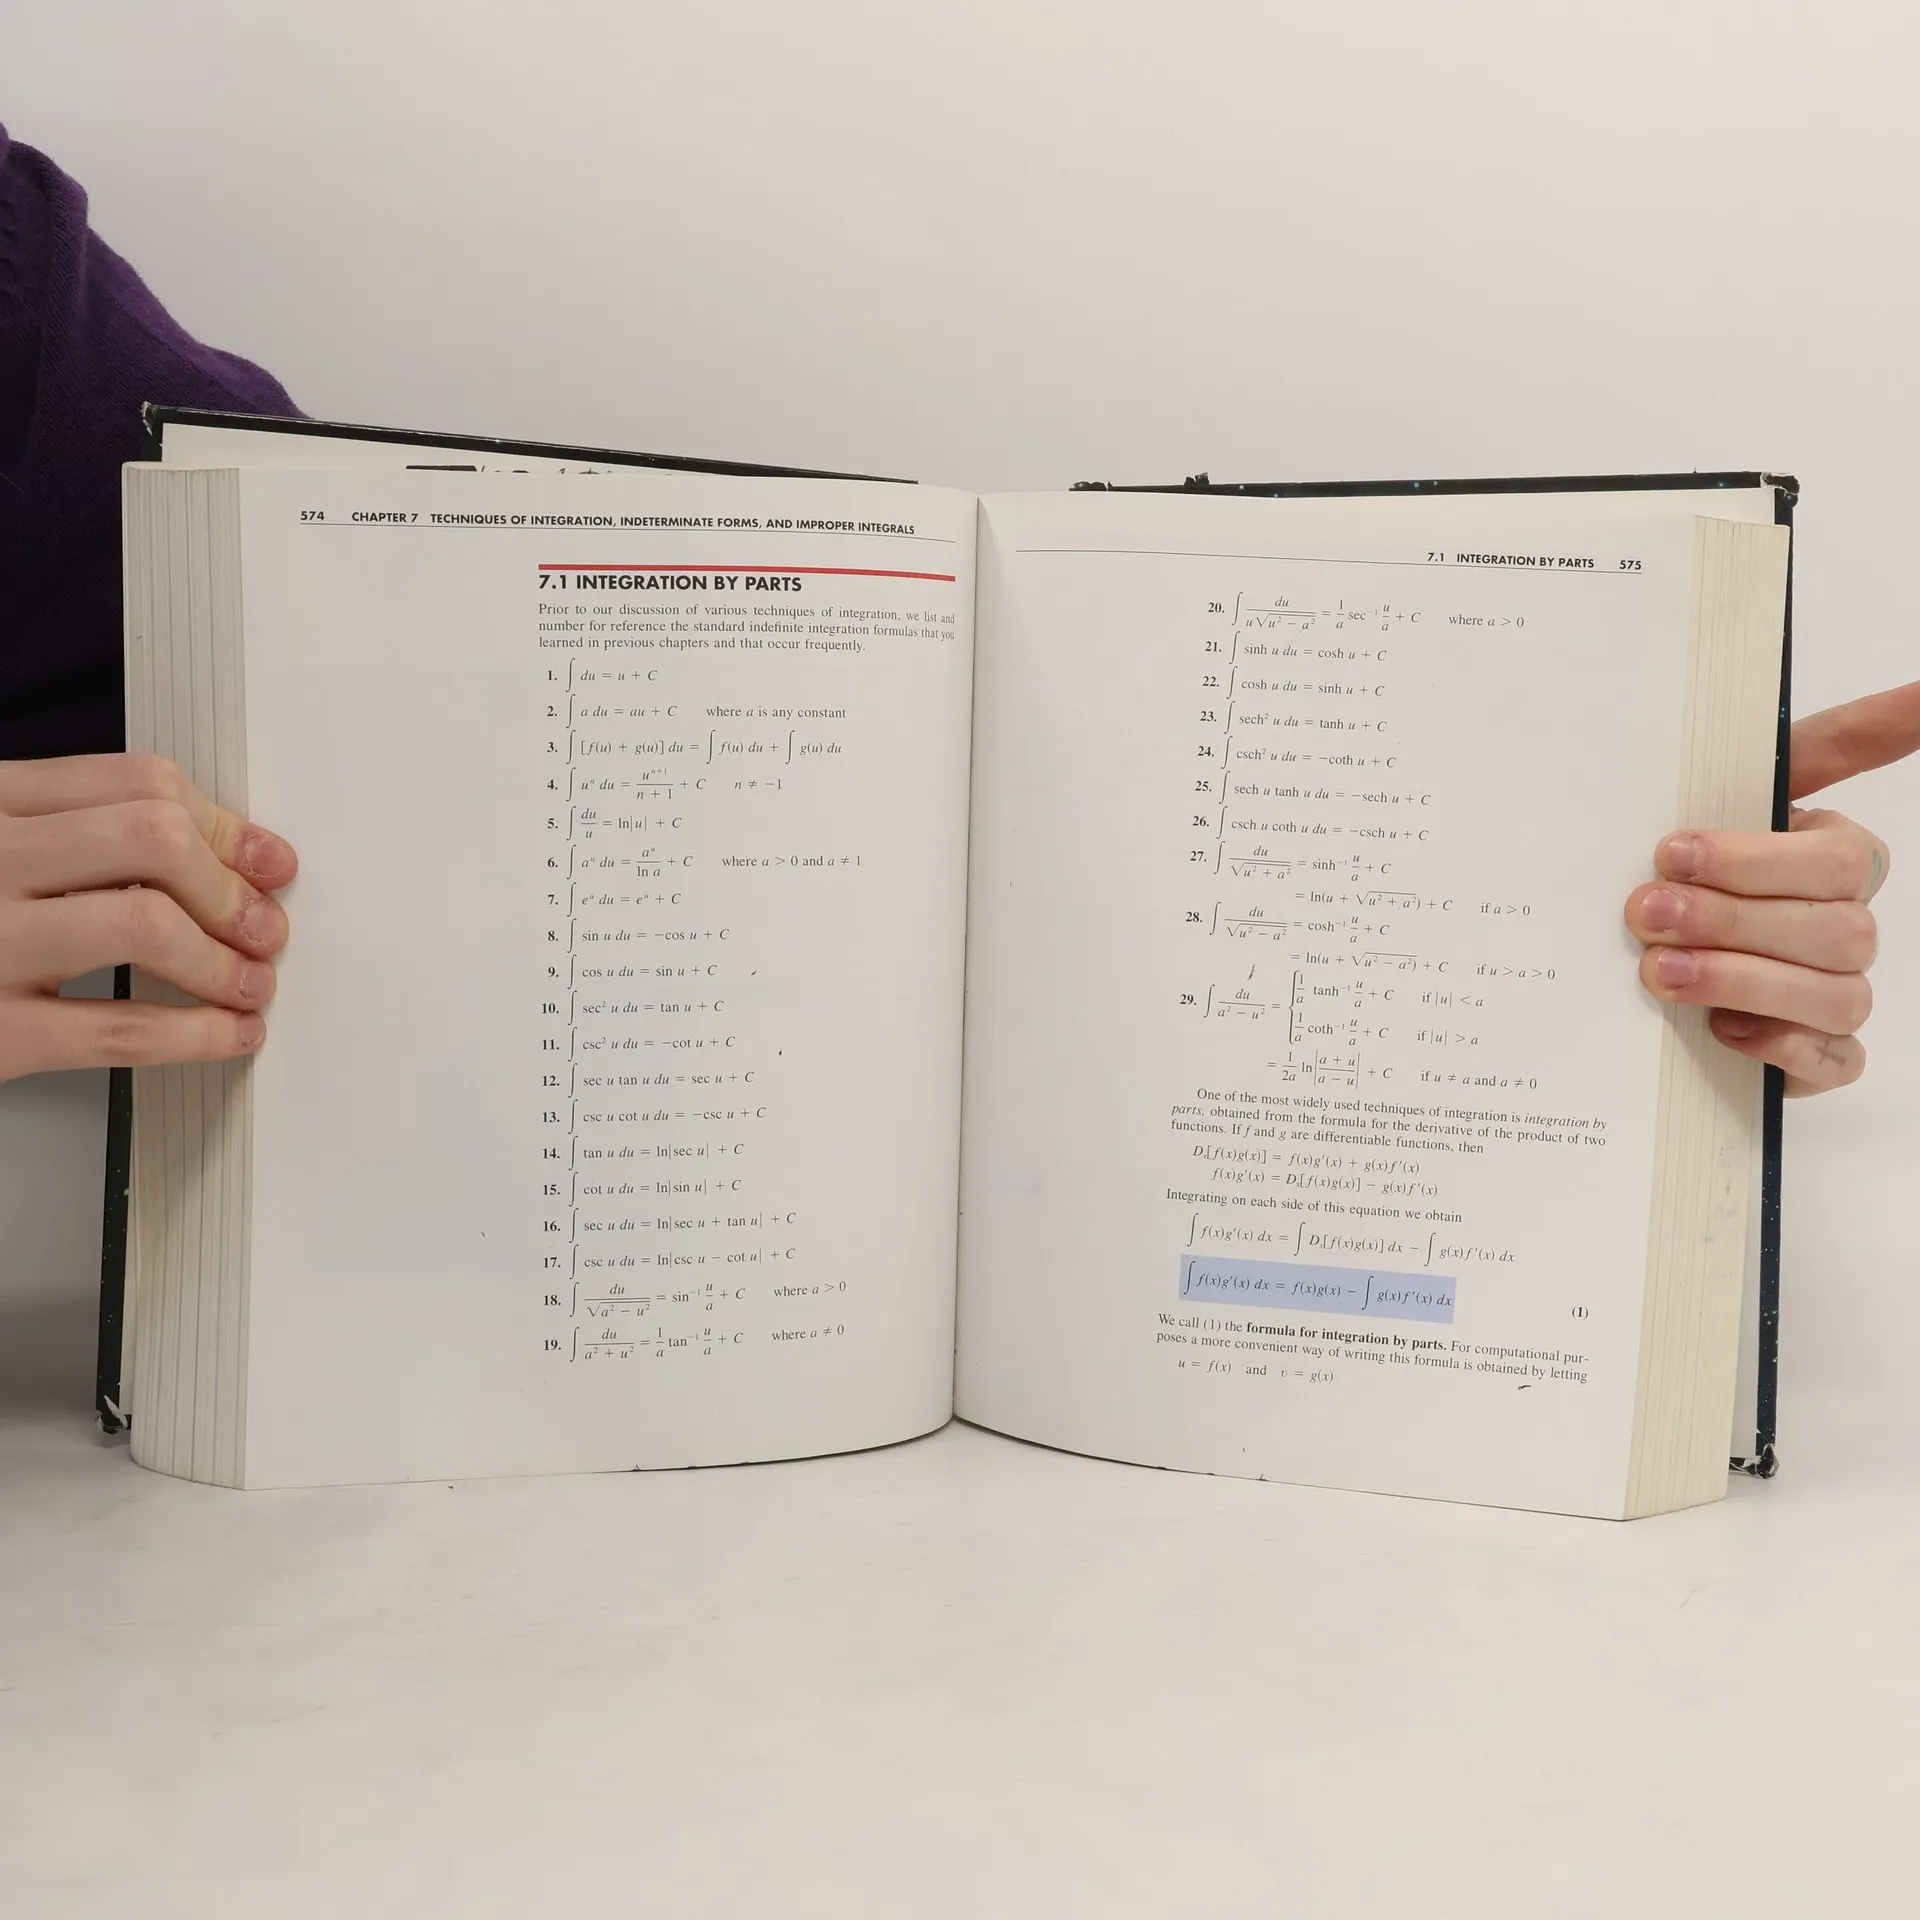 574 CHAPTER 7 TECHNIQUES OF INTEGRATION, INDETERMINATE FORMS, AND IMPROPER INTEGRALS
7.1 INTEGRATION BY PARTS
Prior to our discussion of various techniques of integration, we list and
number for reference the standard indefinite integration formulas that you
learned in previous chapters and that occur frequently.
1. ∫ du = u + C
2. ∫ a du = au + C where a is any constant
3. ∫ [f(u) + g(u)] du = ∫ f(u) du + ∫ g(u) du
4. ∫ uⁿ du = uⁿ⁺¹/(n + 1) + C n ≠ −1
5. ∫ du/u = ln|u| + C
6. ∫ aᵘ du = aᵘ/ln a + C where a > 0 and a ≠ 1
7. ∫ eᵘ du = eᵘ + C
8. ∫ sin u du = −cos u + C
9. ∫ cos u du = sin u + C
10. ∫ sec² u du = tan u + C
11. ∫ csc² u du = −cot u + C
12. ∫ sec u tan u du = sec u + C
13. ∫ csc u cot u du = −csc u + C
14. ∫ tan u du = ln|sec u| + C
15. ∫ cot u du = ln|sin u| + C
16. ∫ sec u du = ln|sec u + tan u| + C
17. ∫ csc u du = ln|csc u − cot u| + C
18. ∫ du/√(a² − u²) = sin⁻¹ u/a + C where a > 0
19. ∫ du/(a² + u²) = 1/a tan⁻¹ u/a + C where a ≠ 0
7.1 INTEGRATION BY PARTS 575
20. ∫ du/(u√(u² − a²)) = 1/a sec⁻¹ u/a + C where a > 0
21. ∫ sinh u du = cosh u + C
22. ∫ cosh u du = sinh u + C
23. ∫ sech² u du = tanh u + C
24. ∫ csch² u du = −coth u + C
25. ∫ sech u tanh u du = −sech u + C
26. ∫ csch u coth u du = −csch u + C
27. ∫ du/√(u² + a²) = sinh⁻¹ u/a + C
= ln(u + √(u² + a²)) + C if a > 0
28. ∫ du/√(u² − a²) = cosh⁻¹ u/a + C
= ln(u + √(u² − a²)) + C if u > a > 0
29. ∫ du/(a² − u²) = { 1/a tanh⁻¹ u/a + C if |u| < a
1/a coth⁻¹ u/a + C if |u| > a
= 1/2a ln|(a + u)/(a − u)| + C if u ≠ a and a ≠ 0
One of the most widely used techniques of integration is integration by
parts, obtained from the formula for the derivative of the product of two
functions. If f and g are differentiable functions, then
Dₓ[f(x)g(x)] = f(x)g′(x) + g(x)f′(x)
f(x)g′(x) = Dₓ[f(x)g(x)] − g(x)f′(x)
Integrating on each side of this equation we obtain
∫ f(x)g′(x) dx = ∫ Dₓ[f(x)g(x)] dx − ∫ g(x)f′(x) dx
∫ f(x)g′(x) dx = f(x)g(x) − ∫ g(x)f′(x) dx (1)
We call (1) the formula for integration by parts. For computational pur-
poses a more convenient way of writing this formula is obtained by letting
u = f(x) and v = g(x)